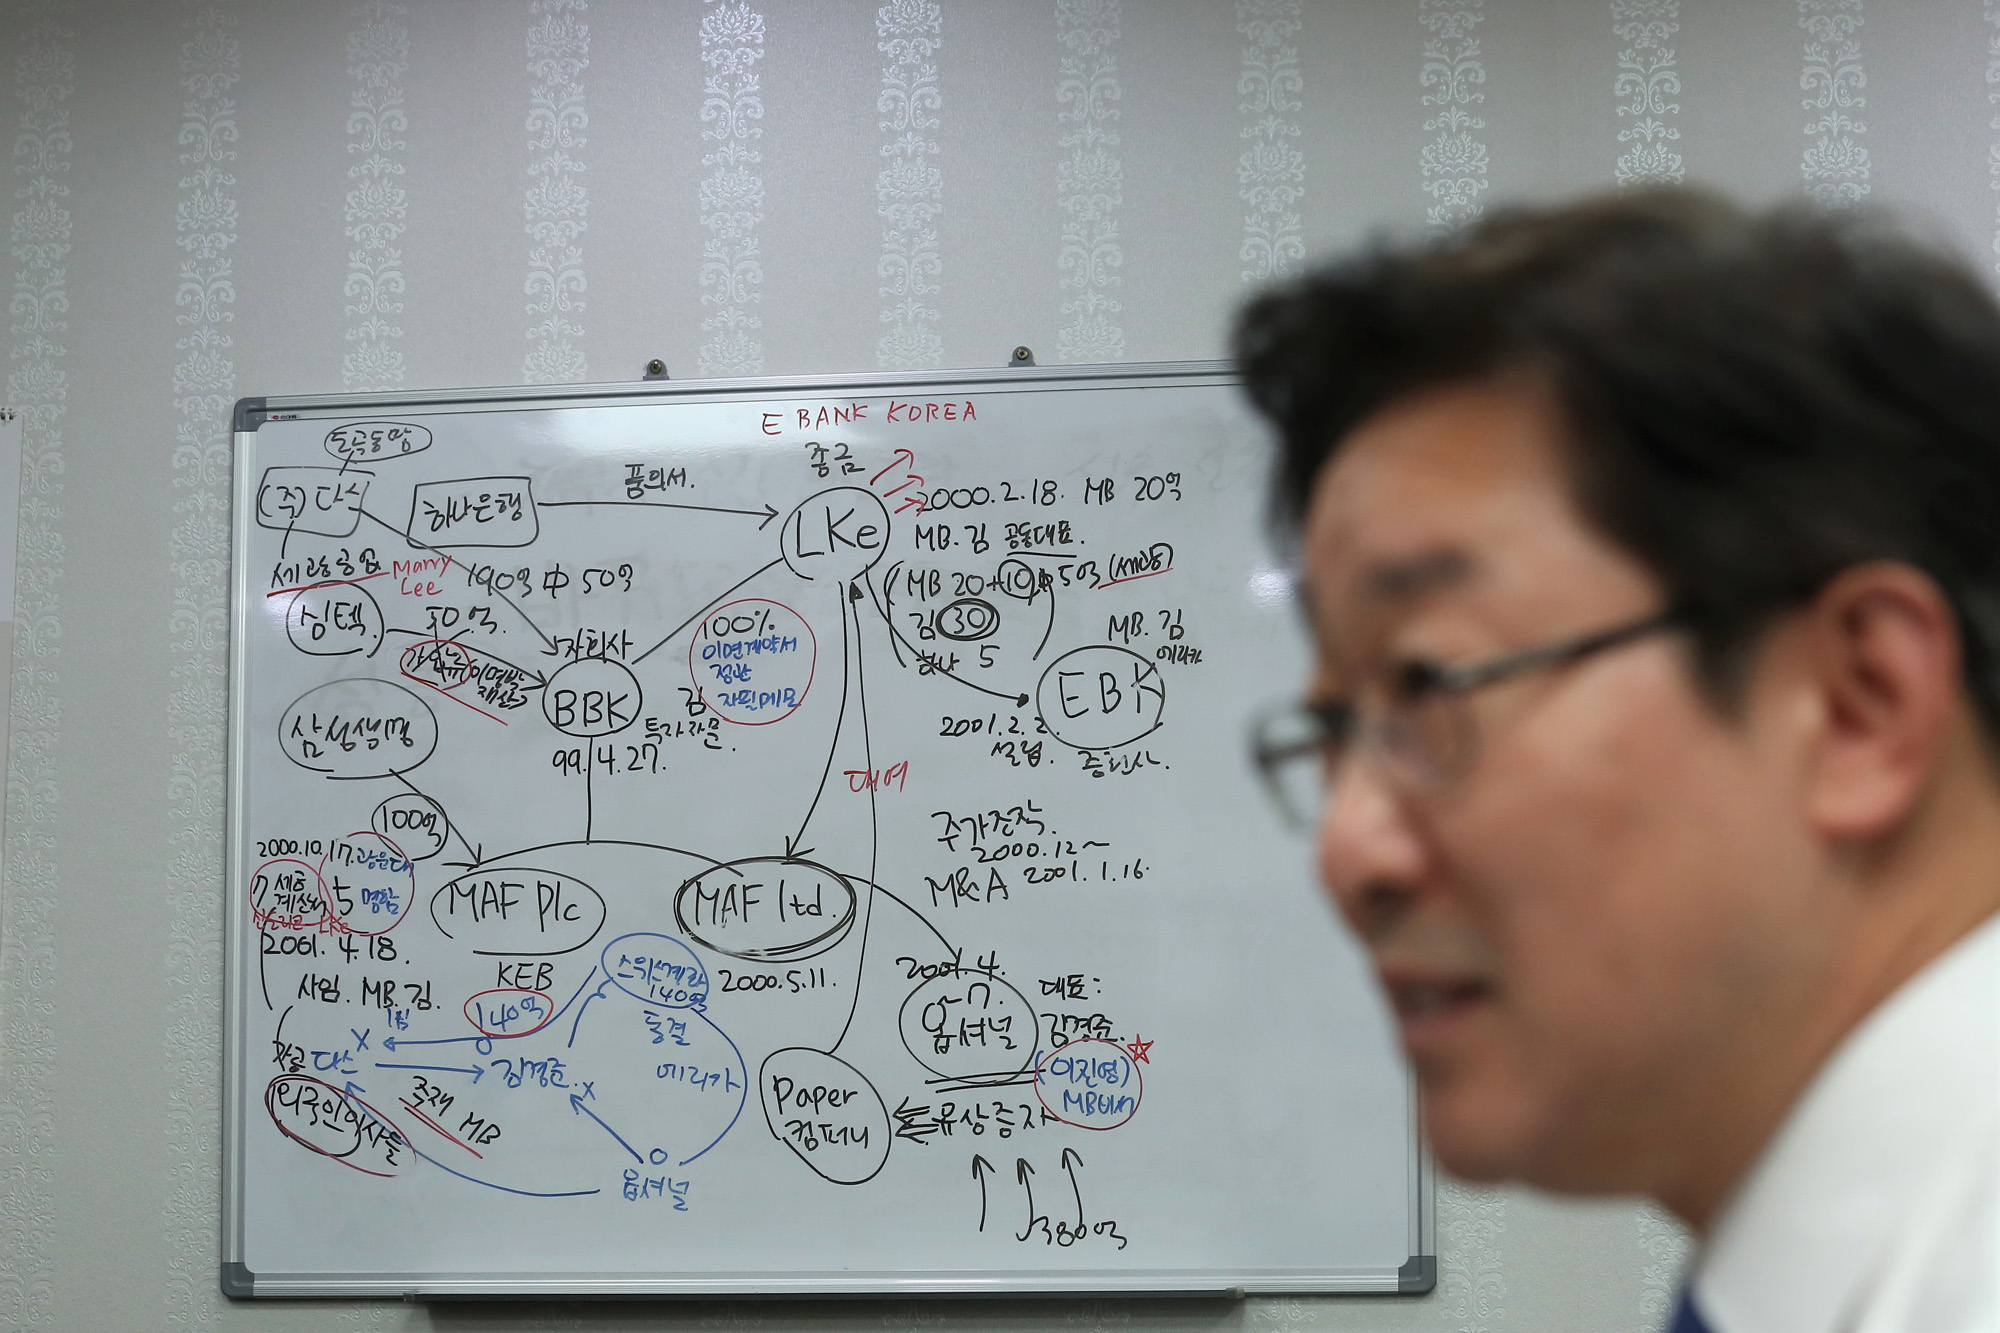 E BANK KOREA
도곡동땅
종금
(주) 다스
하나은행
품의서.
LKe
2000.2.18. MB 20억
MB. 김 공동대표.
Marry
Lee
190억 中 50억
MB 20+10
5억
김 30
하나 5
심텍
50억.
자회사
100%
이면계약서
정관
자필메모
MB. 김
에리카
이명박
재산
BBK
김
EBK
2001.2.2.
설립.
증권사.
삼성생명
99.4.27.
대여
100억
주가조작.
2000.12~
M&A 2001.1.16.
2000.10.17.
광운대
7
5 명함
LKe
MAF Plc
MAF ltd.
2001.4.18.
사임. MB. 김.
KEB
140억
스위스계좌
140억
동결
2000.5.11.
2001.4.
~7.
옵셔널
대표:
김경준.
(이진영)
MB비서
다스
김경준.
에리카
외국인의사들
MB
Paper
컴퍼니
유상증자
옵셔널
380억